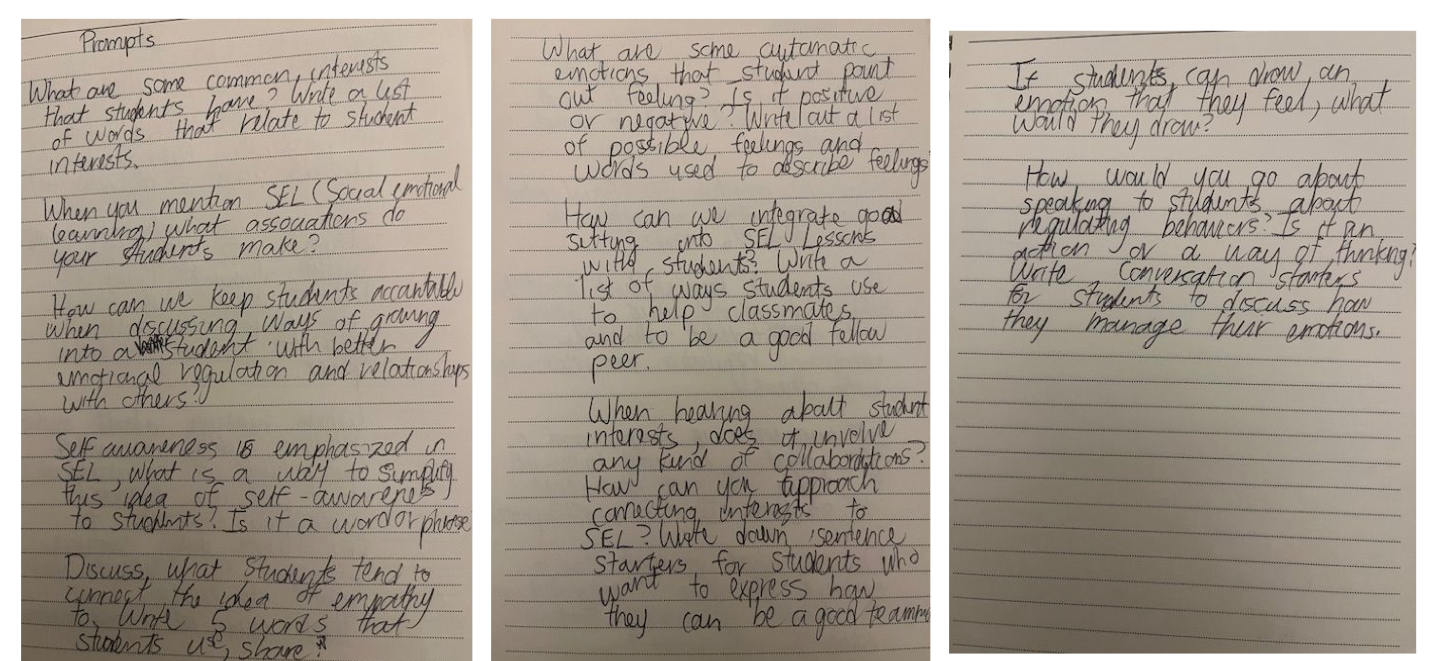 Prompts
What are some common, interests
that students have? Write a list
of words that relate to student
interests.
When you mention SEL (Social emotional
learning) what associations do
your students make?
How can we keep students accountable
when discussing, ways of growing
into a student with better
emotional regulation and relationships
with others?
Self awareness is emphasized in
SEL, what is a way to simplify
this idea of self-awareness
to students? Is it a word or phrase
Discuss, what students tend to
connect the idea of empathy
to. Write 5 words that
students use, share.
What are some automatic
emotions that student point
out feeling? Is it positive
or negative? Write out a list
of possible feelings and
words used to describe feelings
How can we integrate goal
setting into SEL Lessons
with students? Write a
list of ways students use
to help classmates
and to be a good fellow
peer.
When hearing about student
interests, does it involve
any kind of collaborations?
How can you approach
connecting interests to
SEL? Write down sentence
starters for students who
want to express how
they can be a good teamm
If students, can draw, an
emotion that they feel, what
would they draw?
How would you go about
speaking to students about
regulating behaviors? Is it an
action or a way of thinking?
Write conversation starters
for students to discuss how
they manage their emotions.